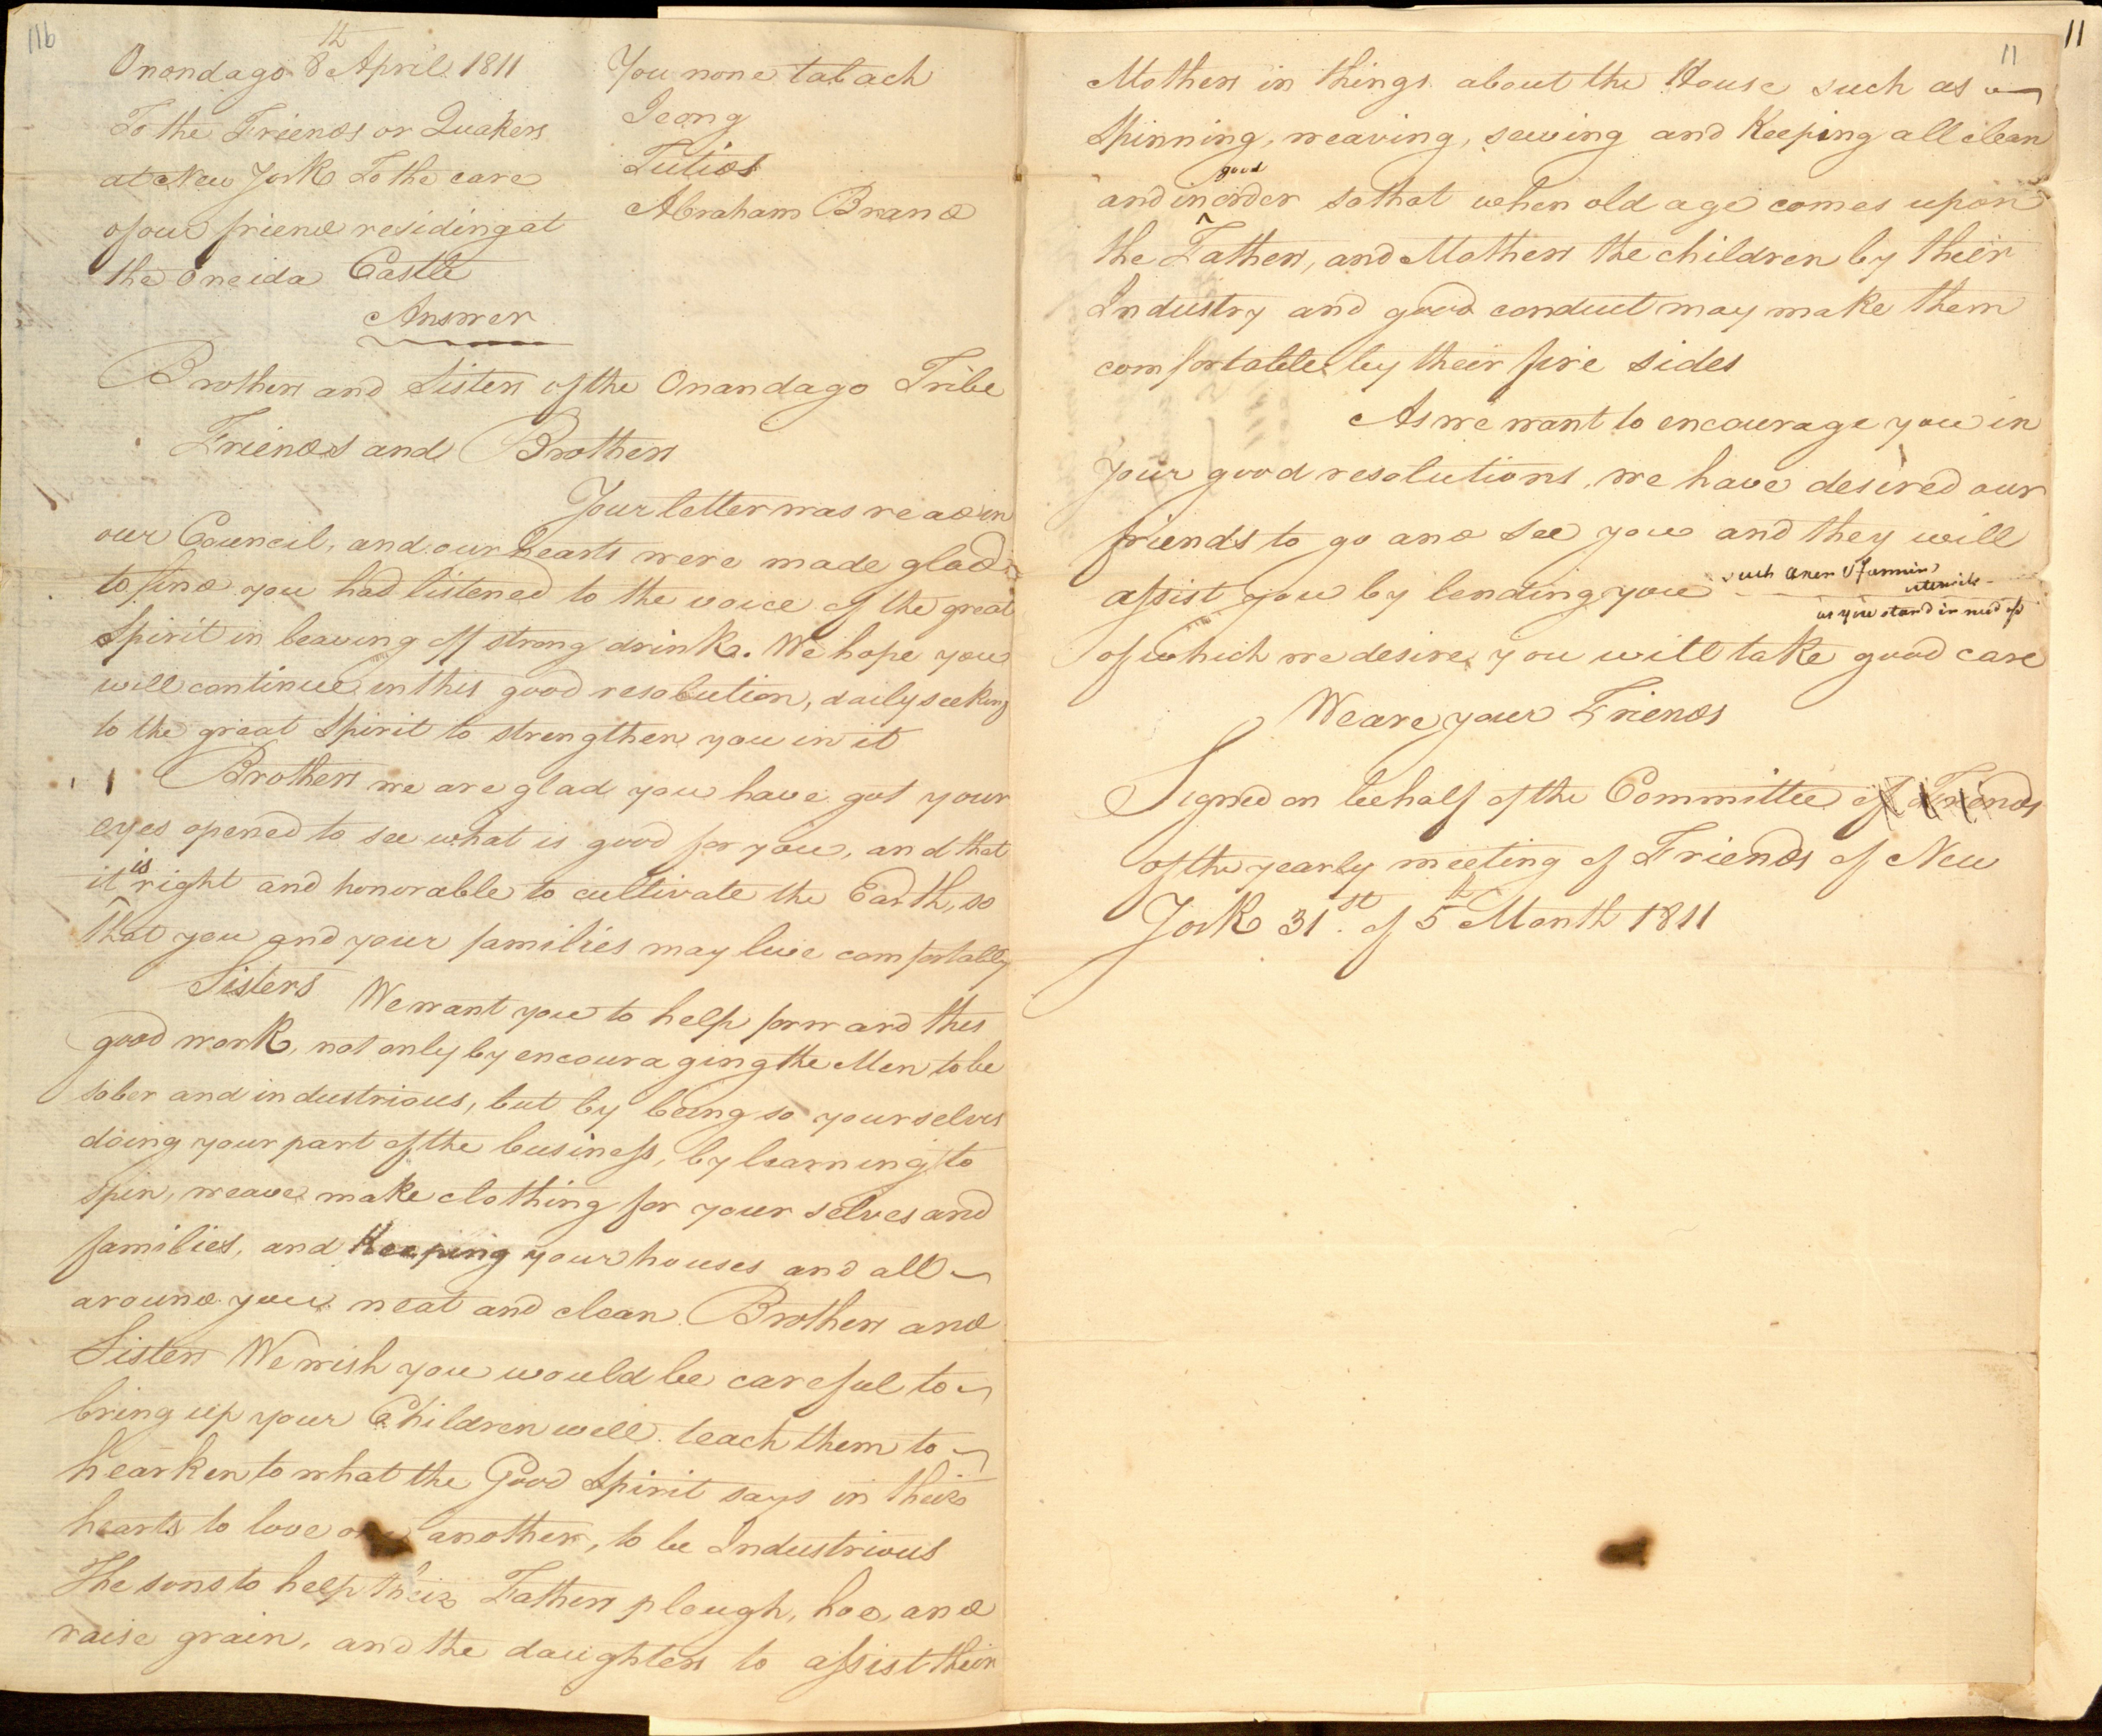 11b
Onondago 8th April 1811
To the Friends or Quakers
at New York To the care
of our friend residing at
the Oneida Castle
You none tatach
Jeong
Tutios
Abraham Brand
Answer
Brothers and Sisters of the Onandago Tribe
Friends and Brothers
Your letter was read in
our Council, and our hearts were made glad
to find you had listened to the voice of the great
Spirit in leaving off strong drink. We hope you
will continue in this good resolution, daily seeking
to the great Spirit to strengthen you in it
Brothers we are glad you have got your
eyes opened to see what is good for you, and that
it is right and honorable to cultivate the Earth, so
that you and your families may live comfortably
Sisters We want you to help forward this
good work, not only by encouraging the Men to be
sober and industrious, but by being so yourselves
doing your part of the business, by learning to
spin, weave make clothing for your selves and
families, and Keeping your houses and all
around you neat and clean Brothers and
Sisters We wish you would be careful to
bring up your Children well. teach them to
hearken to what the Good Spirit says in their
hearts to love one another, to be Industrious
The sons to help their Fathers plough, hoe, and
raise grain, and the daughters to assist their
11
11
Mothers in things about the House such as
Spinning, weaving, sewing and Keeping all clean
and in good order so that when old age comes upon
the Fathers, and Mothers the children by their
Industry and good conduct may make them
comfortable by their fire sides
As we want to encourage you in
your good resolutions, we have desired our
friends to go and see you and they will
assist you by lending you such Farming
utensils
as you stand in need of
of which we desire you will take good care
We are your Friends
Signed on behalf of the Committee of Friends
of the yearly meeting of Friends of New
York 31st. of 5th Month 1811